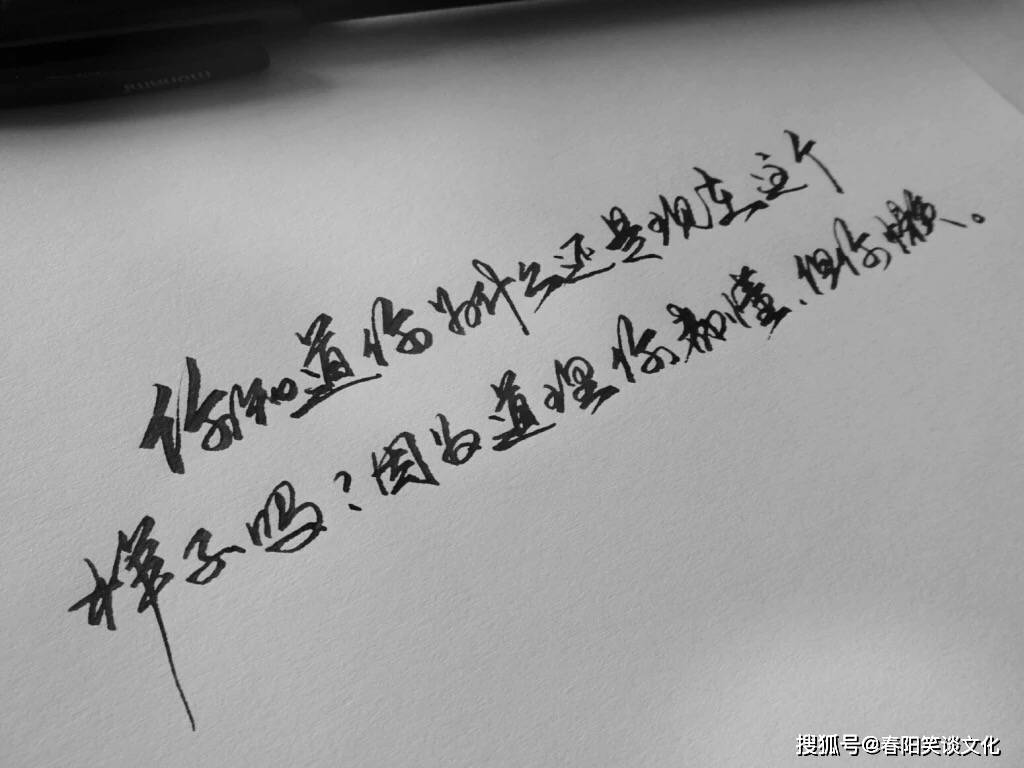 你知道你为什么还是现在这个
样子吗?因为道理你都懂、但你懒。
搜狐号@春阳笑谈文化